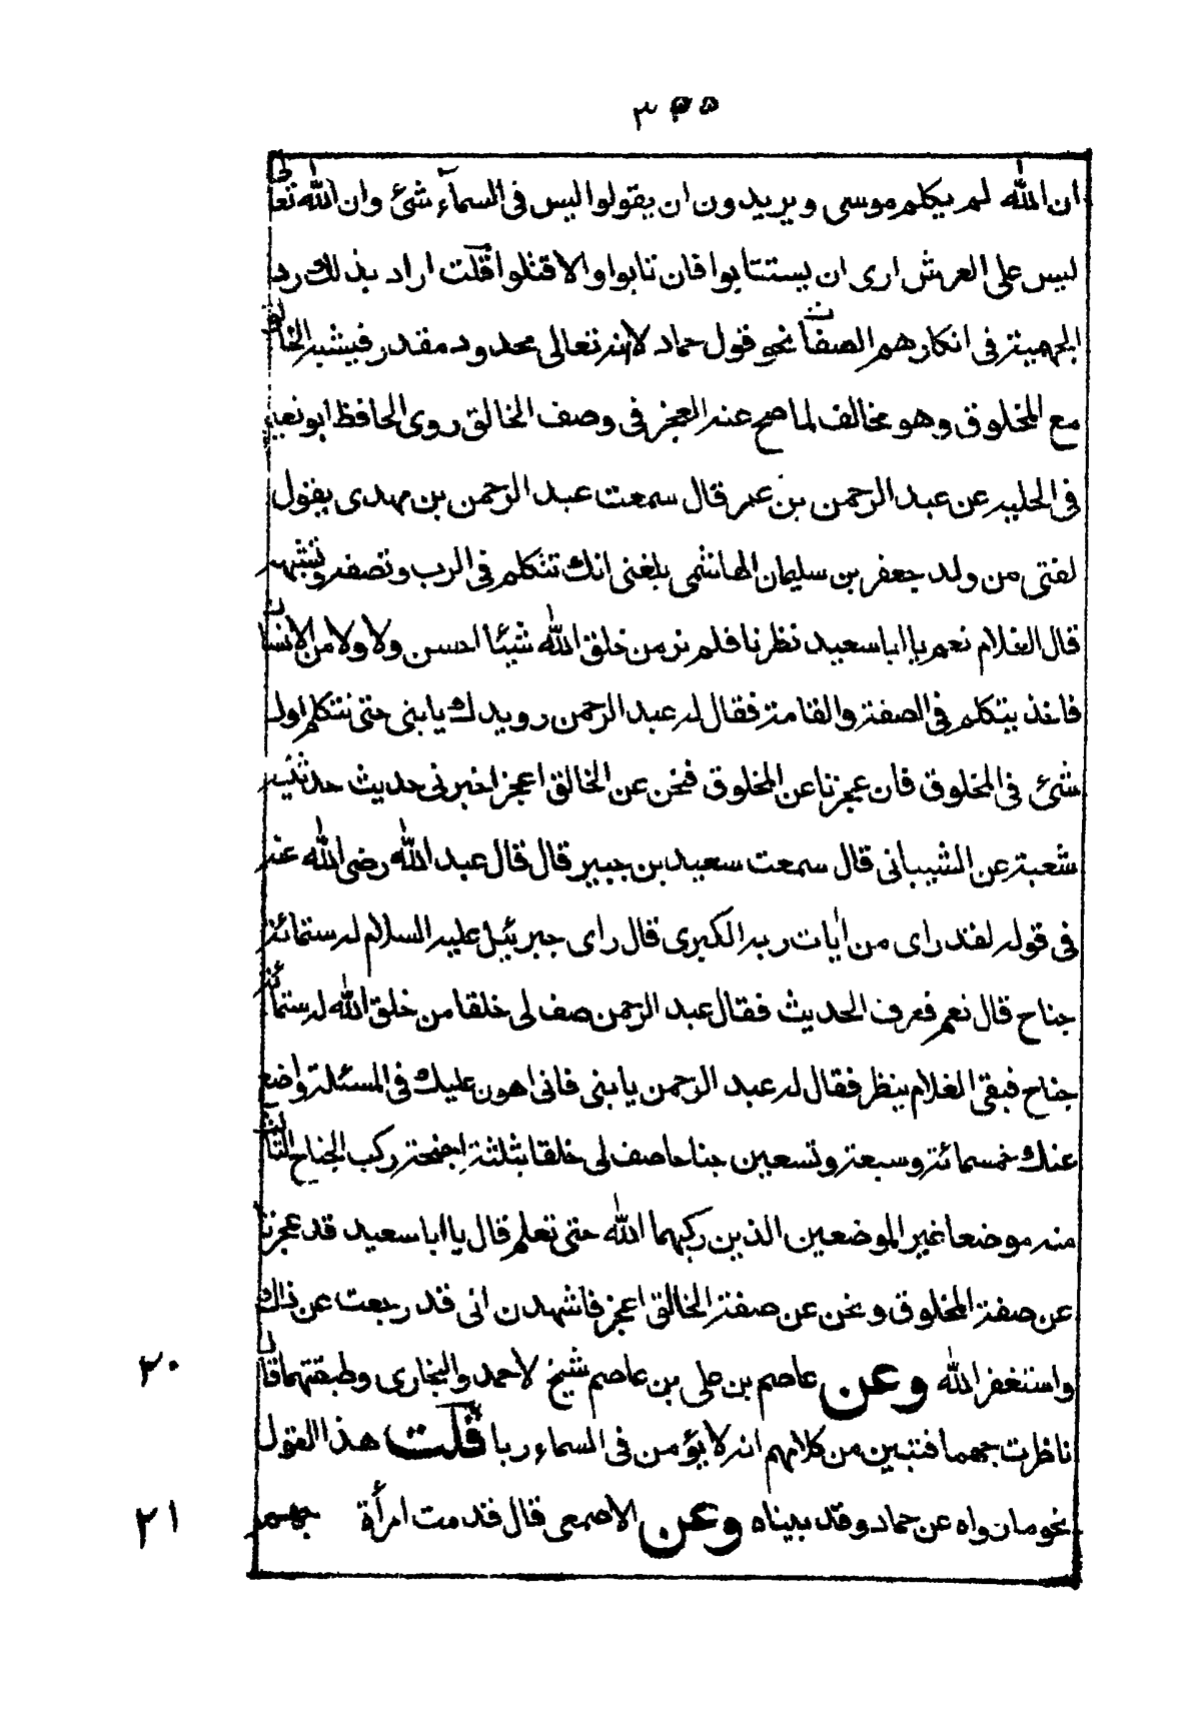 ان الله لم يكلم موسى ويريدون ان يقولوا ليس فى السمآء شئ وان الله تعالى
ليس على العرش ارى ان يستتابوا فان تابوا والا قتلوا قلت اراد بذلك رد
الجهمية فى انكارهم الصفات نحو قول حماد لانه تعالى محدود مقدر فيشبه الخالق
مع المخلوق وهو مخالف لما صح عنه العجز فى وصف الخالق روى الحافظ ابو نعيم
فى الحليه عن عبد الرحمن بن عمر قال سمعت عبد الرحمن بن مهدى يقول
لفتى من ولد جعفر بن سليمان الهاشمى بلغنى انك تتكلم فى الرب وتصفه وتشبهه
قال الغلام نعم يا ابا سعيد نظرنا فلم نر من خلق الله شيئا احسن ولا ولا من الانسان
فاخذ يتكلم فى الصفة والقامة فقال له عبد الرحمن رويدك يا بنى حتى نتكلم اول
شئ فى المخلوق فان عجزنا عن المخلوق فنحن عن الخالق اعجز اخبرنى حديث حدثنيه
شعبة عن الشيبانى قال سمعت سعيد بن جبير قال قال عبد الله رضى الله عنه
فى قوله لقد راى من ايات ربه الكبرى قال راى جبريئل عليه السلام له ستمائة
جناح قال نعم فعرف الحديث فقال عبد الرحمن صف لى خلقا من خلق الله له ستمائة
جناح فبقى الغلام ينظر فقال له عبد الرحمن يا بنى فانى اهون عليك فى المسئلة واضع
عنك خمسمائة وسبعة وتسعين جناحا صف لى خلقا بثلثة اجنحة ركب الجناح الثالث
منه موضعا غير الموضعين الذين ركبهما الله حتى نعلم قال يا ابا سعيد قد عجزنا
عن صفة المخلوق ونحن عن صفة الخالق اعجز فاشهدن انى قد رجعت عن ذلك
واستغفر الله وعن عاصم بن على بن عاصم شيخ لاحمد والبخارى وطبقتهما قال
ناظرت جهما فتبين من كلامهم انه لا يؤمن فى السماء ربا قلت هذا القول
نحو ما رواه عن حماد وقد بيناه وعن الاصمعى قال قدمت امرأة جهم
٢٠
٢١